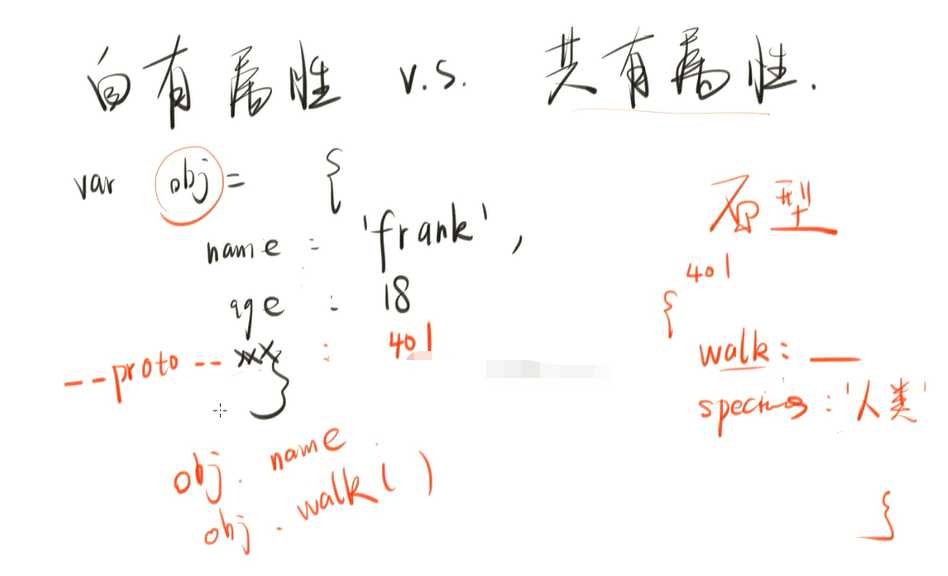 自有属性 v.s. 共有属性.
var obj = {
name : 'frank',
age : 18
--proto-- xx : 401
}
obj. name
obj. walk()
原型
401
{
walk: __
: '人类'
}